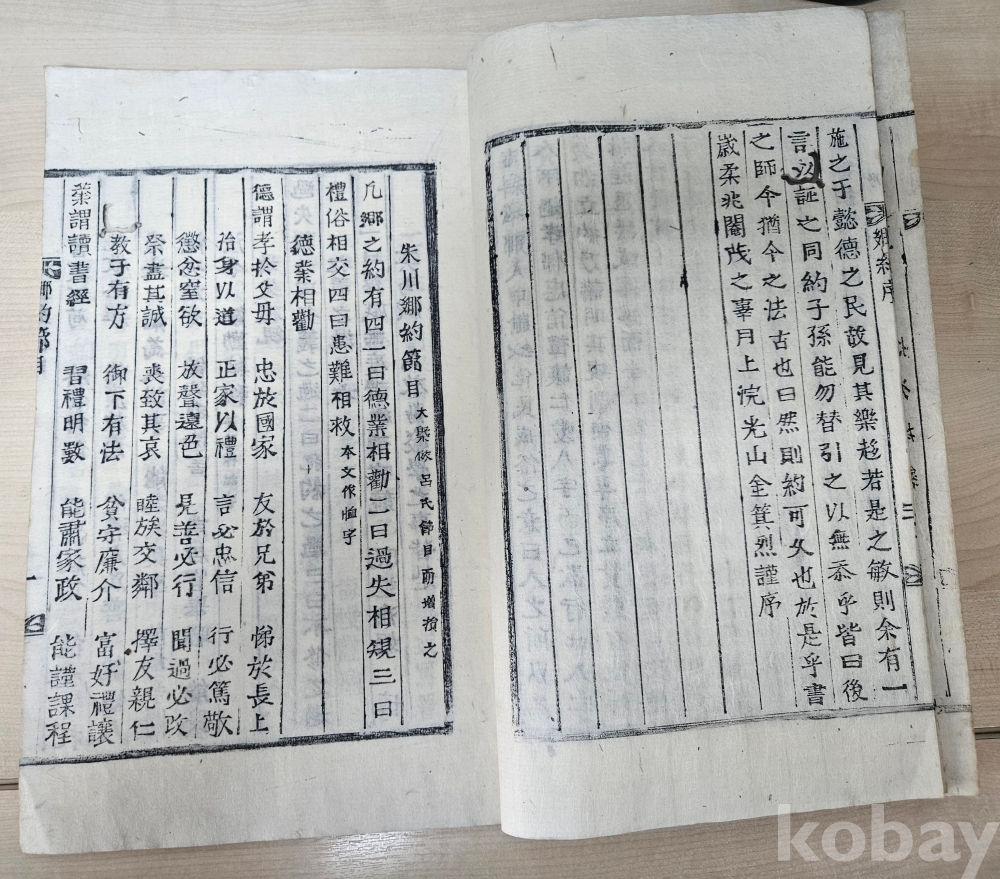 施之于懿德之民故見其樂趍若是之敏則余有一
言以証之同約子孫能勿替引之以無忝乎皆曰後
之師今猶今之法古也曰然則約可久也於是乎書
歲柔兆閹茂之辜月上浣光山金箕烈謹序
鄉約序
朱川鄉約節目 大槩倣呂氏節目而增損之
凡鄉之約有四一曰德業相勸二曰過失相規三曰
禮俗相交四曰患難相救 本文作恤字
德業相勸
德謂孝於父母 忠於國家 友於兄弟 悌於長上
治身以道 正家以禮 言必忠信 行必篤敬
懲忿窒欲 放聲遠色 見善必行 聞過必改
祭盡其誠 喪致其哀 睦族交鄰 擇友親仁
教子有方 御下有法 貧守廉介 富好禮讓
業謂讀書經 習禮明數 能肅家政 能謹課程
鄉約節目
一
kobay